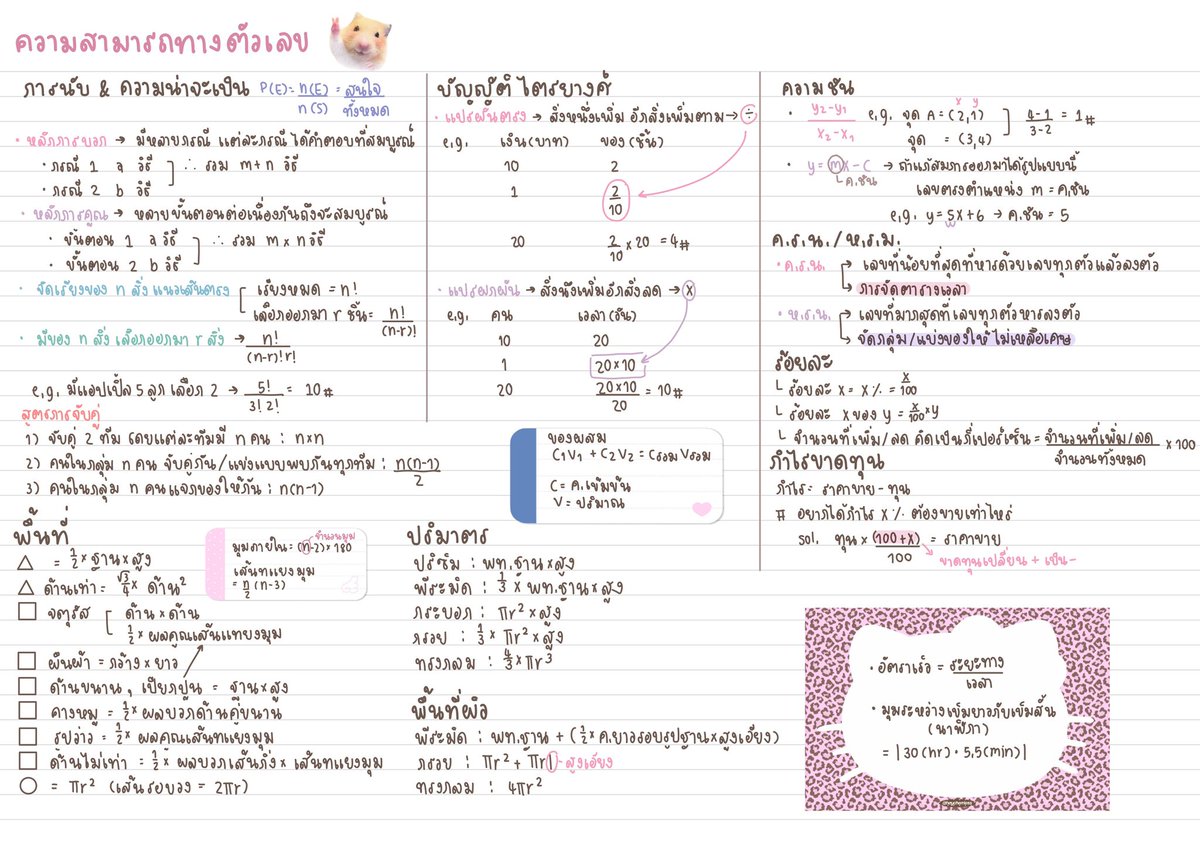 ความสามารถทางตัวเลข
การนับ & ความน่าจะเป็น P(E) = n(E)/n(S) = สนใจ/ทั้งหมด
• หลักการบอก → มีหลายกรณี แต่ละกรณีได้คำตอบที่สมบูรณ์
• กรณี 1 a วิธี
• กรณี 2 b วิธี
∴ รวม m+n วิธี
• หลักการคูณ → หลายขั้นตอนต่อเนื่องกันถึงจะสมบูรณ์
• ขั้นตอน 1 a วิธี
• ขั้นตอน 2 b วิธี
∴ รวม m×n วิธี
• จัดเรียงของ n สิ่ง แนวเส้นตรง
เรียงหมด = n!
เลือกออกมา r ชิ้น = n!/(n-r)!
• มีของ n สิ่ง เลือกออกมา r สิ่ง → n!/(n-r)!r!
e.g. มีแอปเปิ้ล 5 ลูก เลือก 2 → 5!/3!2! = 10#
สูตรการจับคู่
1) จับคู่ 2 ทีม โดยแต่ละทีมมี n คน : n×n
2) คนในกลุ่ม n คน จับคู่กัน/แข่งแบบพบกันทุกทีม : n(n-1)/2
3) คนในกลุ่ม n คนแจกของให้กัน : n(n-1)
บัญญัติไตรยางศ์
• แปรผันตรง → สิ่งหนึ่งเพิ่ม อีกสิ่งเพิ่มตาม → ÷
e.g. เงิน(บาท) ของ(ชิ้น)
10 2
1 2/10
20 2/10 × 20 = 4#
• แปรผกผัน → สิ่งนึงเพิ่มอีกสิ่งลด → x
e.g. คน เวลา(วัน)
10 20
1 20×10
20 20×10/20 = 10#
ของผสม
C1V1 + C2V2 = CรวมVรวม
C = ค.เข้มข้น
V = ปริมาณ
ความชัน
• y2-y1/x2-x1 e.g. จุด A = (2,1) x y
จุด = (3,4)
4-1/3-2 = 1#
• y = mx-c → ถ้าแก้สมการออกมาได้รูปแบบนี้
ค.ชัน
เลขตรงตำแหน่ง m = ค.ชัน
e.g. y=5x+6 → ค.ชัน = 5
ค.ร.น./ห.ร.ม.
• ค.ร.น. → เลขที่น้อยที่สุดที่หารด้วยเลขทุกตัวแล้วลงตัว
→ การจัดตารางเวลา
• ห.ร.ม. → เลขที่มากสุดที่เลขทุกตัวหารลงตัว
→ จัดกลุ่ม/แบ่งของให้ไม่เหลือเศษ
ร้อยละ
└ ร้อยละ x = x% = x/100
└ ร้อยละ x ของ y = x/100 × y
└ จำนวนที่เพิ่ม/ลด คิดเป็นกี่เปอร์เซ็น = จำนวนที่เพิ่ม/ลด / จำนวนทั้งหมด × 100
กำไรขาดทุน
กำไร = ราคาขาย - ทุน
# อยากได้กำไร x% ต้องขายเท่าไหร่
sol. ทุน × (100+x)/100 = ราคาขาย
ขาดทุนเปลี่ยน + เป็น -
พื้นที่
△ = 1/2 × ฐาน × สูง
△ ด้านเท่า = √3/4 × ด้าน²
□ จตุรัส
ด้าน × ด้าน
1/2 × ผลคูณเส้นแทยงมุม
□ ผืนผ้า = กว้าง × ยาว
□ ด้านขนาน, เปียกปูน = ฐาน × สูง
□ คางหมู = 1/2 × ผลบวกด้านคู่ขนาน
□ รูปว่าว = 1/2 × ผลคูณเส้นทแยงมุม
□ ด้านไม่เท่า = 1/2 × ผลบวกเส้นกิ่ง × เส้นทแยงมุม
○ = πr² (เส้นรอบวง = 2πr)
จำนวนมุม
มุมภายใน = (n-2)×180
เส้นทแยงมุม
= n/2 (n-3)
ปริมาตร
ปริซึม : พท.ฐาน × สูง
พีระมิด : 1/3 × พท.ฐาน × สูง
กระบอก : πr² × สูง
กรวย : 1/3 × πr² × สูง
ทรงกลม : 4/3 × πr³
พื้นที่ผิว
พีระมิด : พท.ฐาน + (1/2 × ค.ยาวรอบรูปฐาน × สูงเอียง)
กรวย : πr² + πrl - สูงเอียง
ทรงกลม : 4πr²
• อัตราเร็ว = ระยะทาง/เวลา
• มุมระหว่างเข็มยาวกับเข็มสั้น
(นาฬิกา)
= |30(hr) · 5.5(min)|